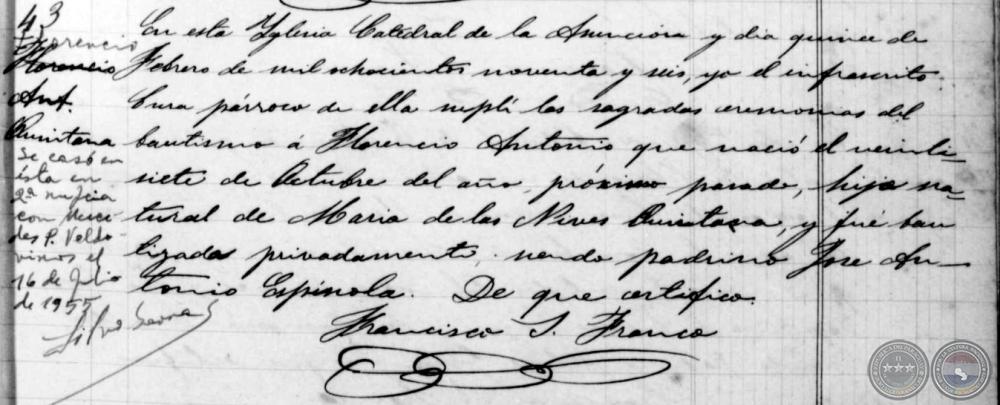 43
Florencio
Florencio
Ant.
Quintana
Se casó en
ésta en
2ª nupcia
con Merce-
des P. Veldo-
vinos el
16 de Julio
de 1955
En esta Yglesia Catedral de la Asuncion y dia quince de
Febrero de mil ochocientos noventa y seis, yo el infrascrito
Cura párroco de ella suplí las sagradas ceremonias del
bautismo á Florencio Antonio que nació el veinti-
siete de Octubre del año próximo pasado, hijo na-
tural de Maria de las Nives Quintana, y fué bau
tizado privadamente, siendo padrino Jose An-
tonio Espinola. De que certifico.
Francisco S. Franco